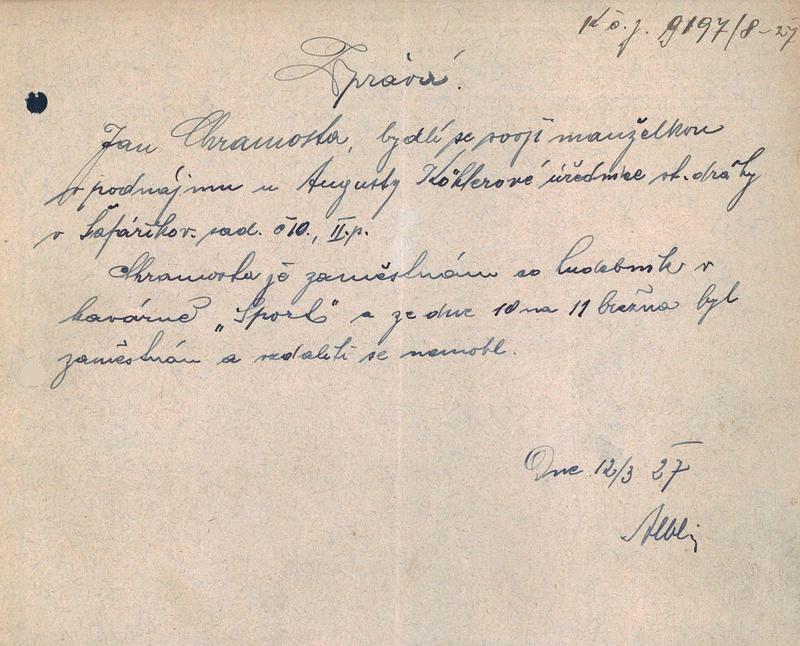 K č.j. 9197/8-27
Zpráva.
Jan Chramosta, bydlí se svojí manželkou
v podnájmu u Augusty Köhlerové úřednice st. dráhy
v Šafáříkov. sad. č 10., II. p.
Chramosta je zaměstnán co hudebník v
kavárně „Sport“ a ze dne 10 na 11 března byl
zaměstnán a vzdáliti se nemohl.
Dne 12/3 27